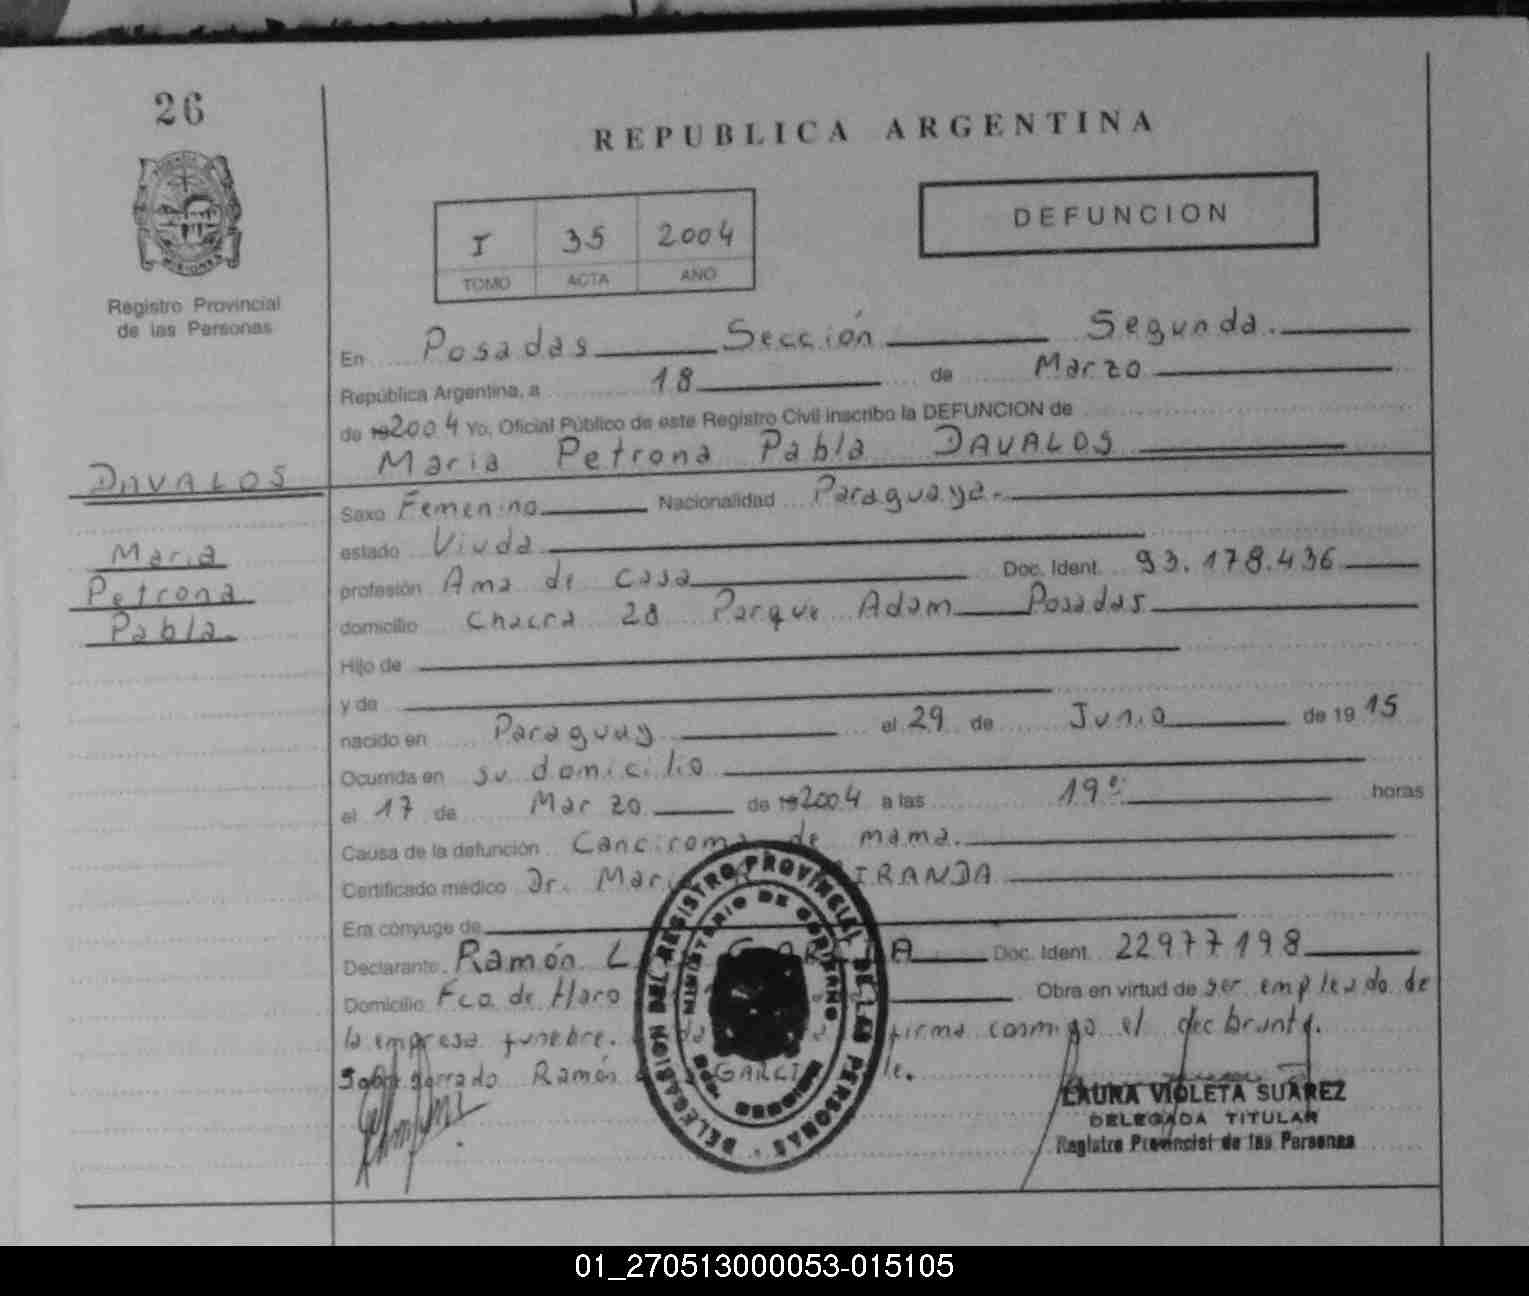 26
REPUBLICA ARGENTINA
I 35 2004
TOMO ACTA AÑO
DEFUNCION
Registro Provincial
de las Personas
En Posadas Sección Segunda.
República Argentina, a 18 de Marzo
de 19 2004 Yo, Oficial Público de este Registro Civil inscribo la DEFUNCION de
Maria Petrona Pabla DAVALOS
DAVALOS
Maria
Petrona
Pabla
Sexo Femenino Nacionalidad Paraguaya.
estado Viuda
profesión Ama de casa Doc. Ident. 93.178.436
domicilio Chacra 28 Parque Adam Posadas
Hijo de
y de
nacido en Paraguay el 29 de Junio de 19 15
Ocurrida en su domicilio
el 17 de Marzo de 19 2004 a las 19 horas
Causa de la defunción Canciroma de mama.
Certificado médico Dr. IRANDA
Era cónyuge de
Declarante Ramón L GARCIA Doc. Ident. 22977198
Domicilio Fco. de Haro Obra en virtud de ser empleado de
la empresa funebre. firma conmigo el declarante.
Sobre borrado Ramón GARCI le.
DELEGACION DEL REGISTRO PROVINCIAL DE LAS PERSONAS
MINISTERIO DE GOBIERNO
LAURA VIOLETA SUAREZ
DELEGADA TITULAR
Registro Provincial de las Personas
MISIONES
01_270513000053-015105